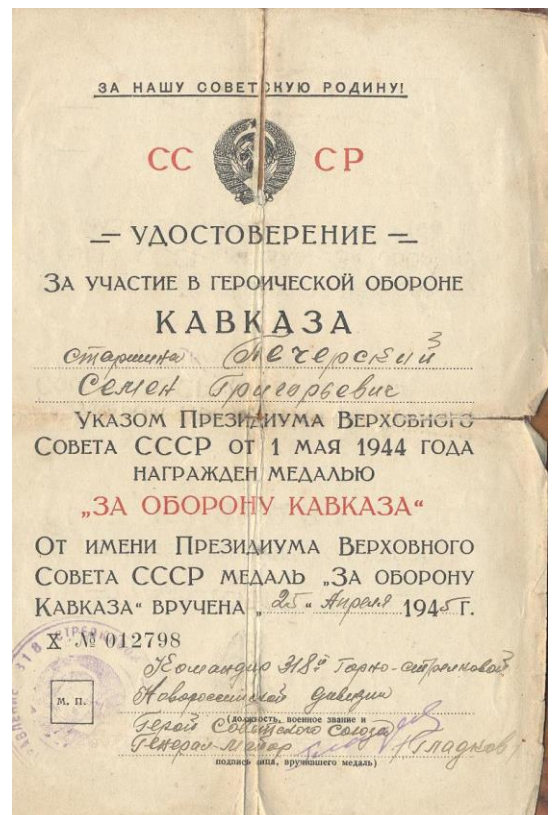 ЗА НАШУ СОВЕТСКУЮ РОДИНУ!
СС СР
УДОСТОВЕРЕНИЕ
ЗА УЧАСТИЕ В ГЕРОИЧЕСКОЙ ОБОРОНЕ
КАВКАЗА
старшина Печерский
Семен Григорьевич
УКАЗОМ ПРЕЗИДИУМА ВЕРХОВНОГО
СОВЕТА СССР ОТ 1 МАЯ 1944 ГОДА
НАГРАЖДЕН МЕДАЛЬЮ
„ЗА ОБОРОНУ КАВКАЗА“
ОТ ИМЕНИ ПРЕЗИДИУМА ВЕРХОВНОГО
СОВЕТА СССР МЕДАЛЬ „ЗА ОБОРОНУ
КАВКАЗА“ ВРУЧЕНА „25“ Апреля 1945 г.
X № 012798
Командир 318й Горно-стрелковой
Новороссийской дивизии
(должность, военное звание и
Герой Советского Союза
Генерал-майор /Гладков/
подпись лица, вручившего медаль)
М. П.
318 СТРЕЛКО